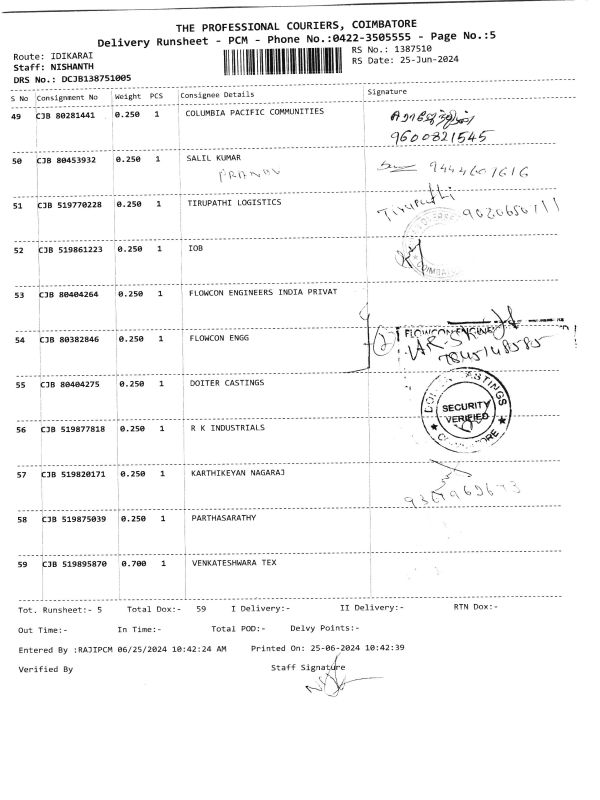 THE PROFESSIONAL COURIERS, COIMBATORE
Delivery Runsheet - PCM - Phone No.:0422-3505555 - Page No.:5
Route: IDIKARAI RS No.: 1387510
Staff: NISHANTH RS Date: 25-Jun-2024
DRS No.: DCJB138751005
S No Consignment No Weight PCS Consignee Details Signature
49 CJB 80281441 0.250 1 COLUMBIA PACIFIC COMMUNITIES
9600821545
50 CJB 80453932 0.250 1 SALIL KUMAR 9444601616
51 CJB 519770228 0.250 1 TIRUPATHI LOGISTICS Tirupathi
52 CJB 519861223 0.250 1 IOB
53 CJB 80404264 0.250 1 FLOWCON ENGINEERS INDIA PRIVAT
54 CJB 80382846 0.250 1 FLOWCON ENGG 2 FLOWCON ENGINE
7845148585
55 CJB 80404275 0.250 1 DOITER CASTINGS CASTINGS
SECURITY
VERIFIED
56 CJB 519877818 0.250 1 R K INDUSTRIALS
57 CJB 519820171 0.250 1 KARTHIKEYAN NAGARAJ
58 CJB 519875039 0.250 1 PARTHASARATHY
59 CJB 519895870 0.700 1 VENKATESHWARA TEX
Tot. Runsheet:- 5 Total Dox:- 59 I Delivery:- II Delivery:- RTN Dox:-
Out Time:- In Time:- Total POD:- Delvy Points:-
Entered By :RAJIPCM 06/25/2024 10:42:24 AM Printed On: 25-06-2024 10:42:39
Verified By Staff Signature